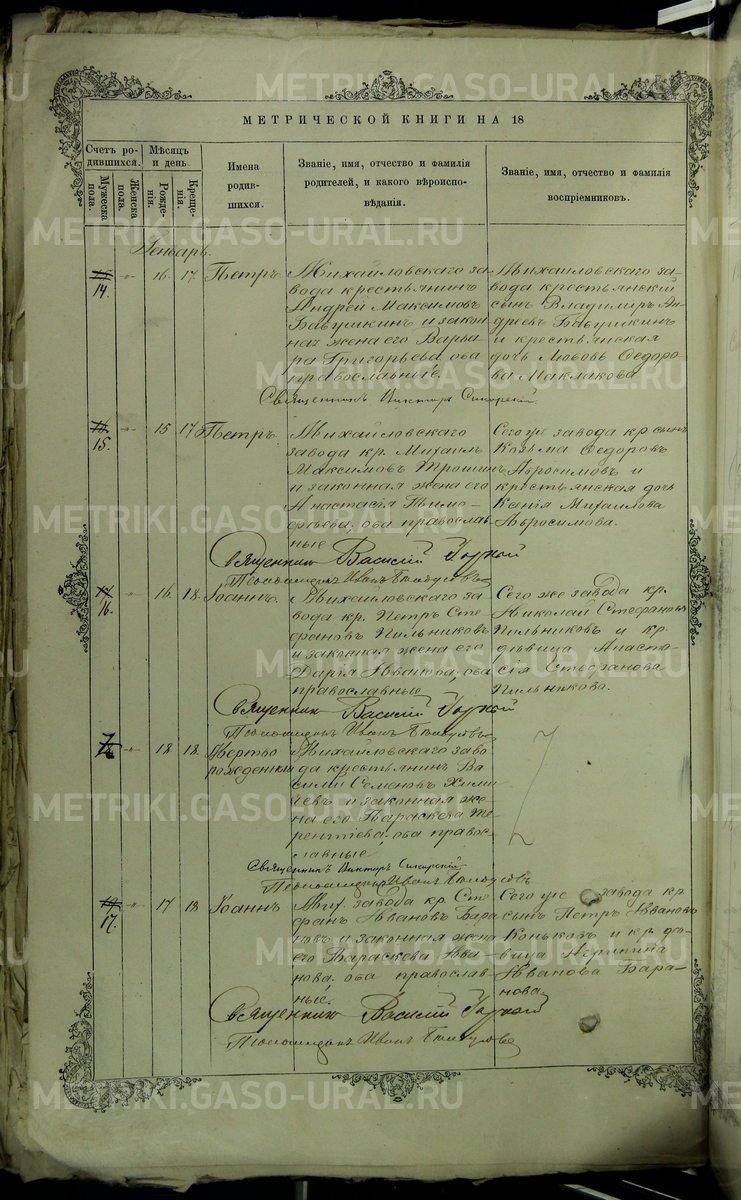 METRIKI.GASO-URAL.RU
МЕТРИЧЕСКОЙ КНИГИ НА 18
Счетъ родившихся.
Мужеска пола.
Женска пола.
Мѣсяцъ и день.
Рожденія.
Крещенія.
Имена родившихся.
Званіе, имя, отчество и фамилія
родителей, и какого вѣроиспо-
вѣданія.
Званіе, имя, отчество и фамилія
воспріемниковъ.
Январь.
14. 16. 17. Петръ.
Михайловскаго за-
вода крестьянинъ
Андрей Максимовъ
Бабушкинъ и закон
ная жена его Варва-
ра Григорьева, оба
православные.
Михайловскаго за-
вода крестьянскій
сынъ Владимиръ Ан
дреевъ Бабушкинъ
и крестьянская
дочь Любовь Ѳедоро-
ва Маклакова
Священникъ Викторъ
15. 15 17 Петръ.
Михайловскаго
завода кр. Михаилъ
Максимовъ Трошинъ
и законная жена его
Анастасія Тимо-
феева, оба православ
ные
Сего же завода кр. сынъ
Козьма Ѳедоровъ
Абросимовъ и
крестьянская дочь
Ксенія Михаилова
Абросимова.
Священникъ Василій
Иванъ
16. 16. 18. Іоаннъ.
Михайловскаго за
вода кр. Петръ Сте
фановъ Пильниковъ
и законная жена его
Дарья Иванова, оба
православные
Сего же завода кр.
Николай Стефановъ
Пильниковъ и кр.
дѣвица Анаста-
сія Стефанова
Пильникова.
Священникъ Василій
Иванъ
18 18. Мертво
рожденный
Михайловскаго заво
да крестьянинъ Ва
силій Семеновъ
и законная же-
на его Параскева Те
рентіева, оба правос-
лавные
Священникъ Викторъ
Иванъ
17. 17 18 Іоаннъ
Мих. завода кр. Сте
фанъ Ивановъ Бара
новъ и законная жена
его Параскева Ива
нова, оба православ
ные.
Сего же завода кр.
сынъ Петръ Ивановъ
Коньковъ и кр. дѣ-
вица Агрипина
Иванова Бара-
нова
Священникъ Василій
Иванъ